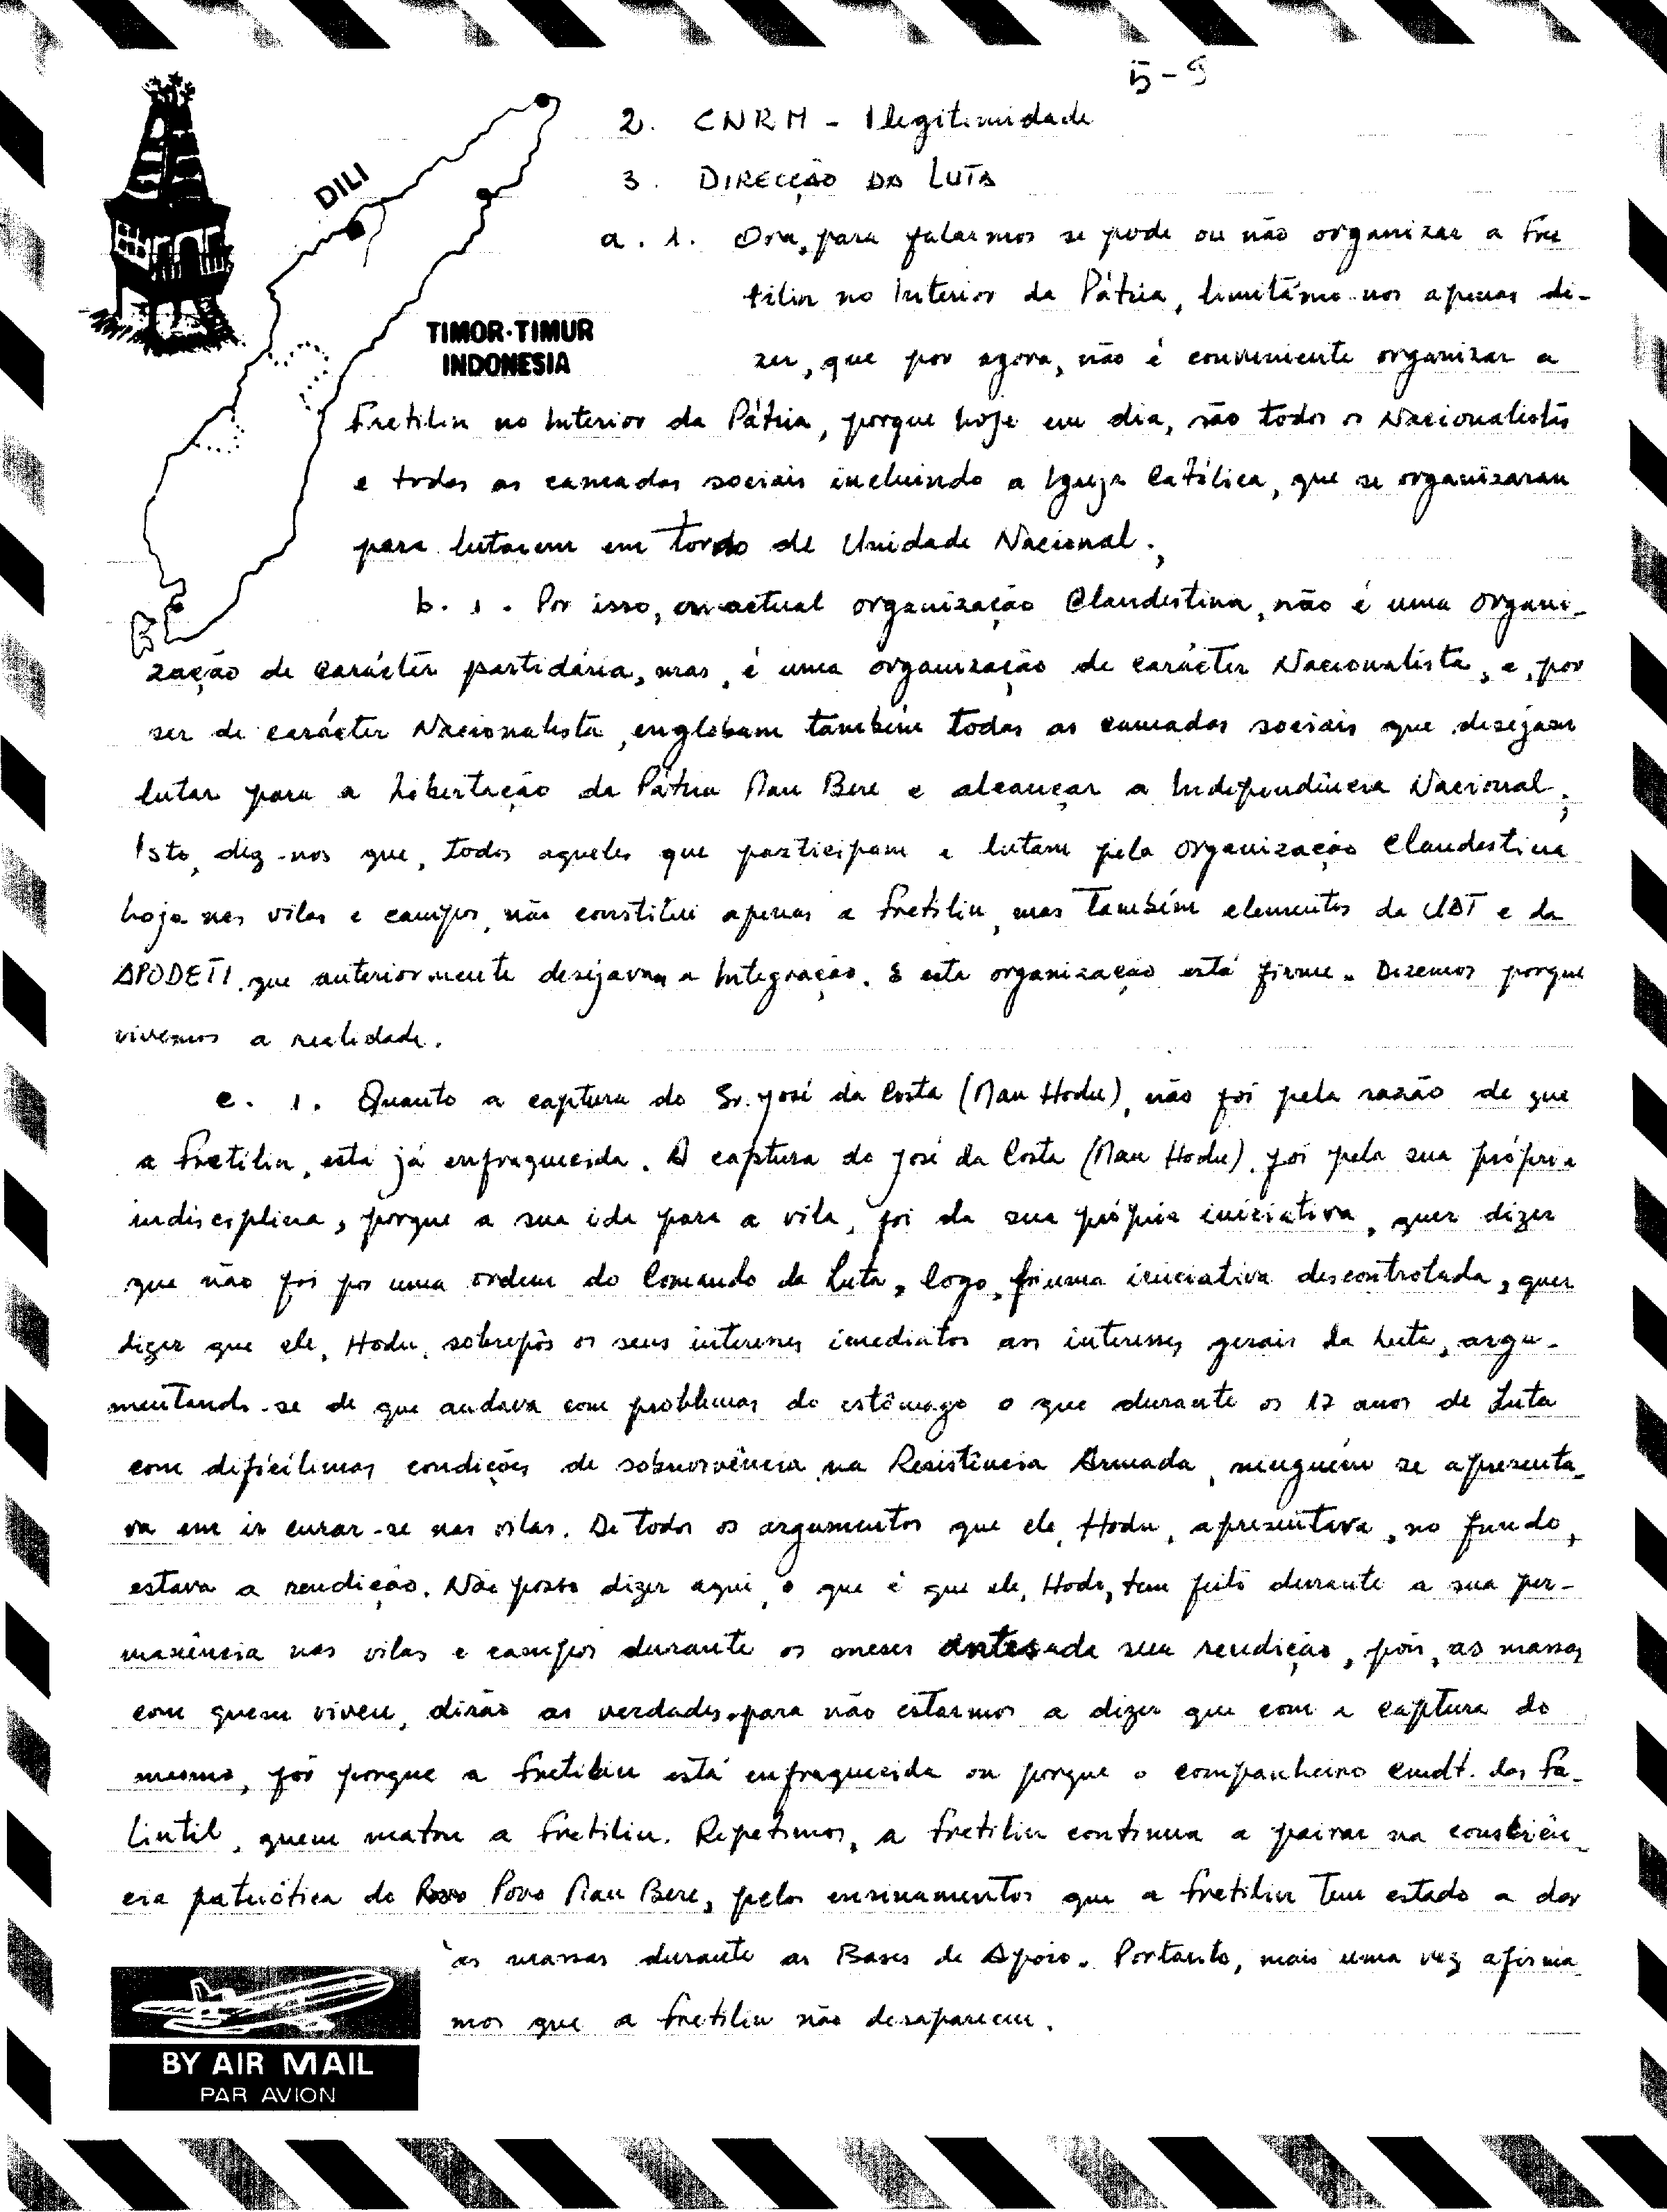 5-9
2. CNRM - Ilegitimidade
3. DIRECÇÃO DA LUTA
DILI
a. 1. Ora, para falarmos se pode ou não organizar a Fre
tilin no Interior da Pátria, limitámo-nos apenas di-
TIMOR·TIMUR
INDONESIA
zer, que por agora, não é conveniente organizar a
Fretilin no Interior da Pátria, porque hoje em dia, são todos os Nacionalistas
e todas as camadas sociais incluindo a Igreja Católica, que se organizaram
para lutarem em torno de Unidade Nacional.,
b. 1. Por isso, actual organização Clandestina, não é uma organi-
zação de carácter partidária, mas, é uma organização de carácter Nacionalista, e, por
ser de carácter Nacionalista, englobam também todas as camadas sociais que desejam
lutar para a Libertação da Pátria Mau Bere e alcançar a Independência Nacional;
Isto, diz-nos que, todos aqueles que participam e lutam pela organização Clandestina
hoje nas vilas e campos, não constitui apenas a Fretilin, mas também elementos da UDT e da
APODETI, que anteriormente desejavam a Integração. E esta organização está firme. Dizemos porque
vivemos a realidade.
c. 1. Quanto a captura do Sr. José da Costa (Mau Hodu), não foi pela razão de que
a Fretilin, está já enfraquecida. A captura do José da Costa (Mau Hodu), foi pela sua própria
indisciplina, porque a sua ida para a vila, foi da sua própria iniciativa, quer dizer
que não foi por uma ordem do Comando da Luta, logo, foi uma iniciativa descontrolada, quer
dizer que ele, Hodu, sobrepôs os seus interesses imediatos aos interesses gerais da Luta, argu-
mentando-se de que andava com problemas do estômago o que durante os 17 anos de Luta
com dificílimas condições de sobrevivência na Resistência Armada, ninguém se apresenta-
va em ir curar-se nas vilas. De todos os argumentos que ele, Hodu, apresentava, no fundo,
estava a rendição. Não posso dizer aqui, o que é que ele, Hodu, tem feito durante a sua per-
manência nas vilas e campos durante os meses antes da sua rendição, pois, as massas
com quem viveu, dirão as verdades, para não estarmos a dizer que com a captura do
mesmo, foi porque a Fretilin está enfraquecida ou porque o companheiro Cmdt. das Fa-
lintil, quem matou a Fretilin. Repetimos, a Fretilin continua a pairar na consciên-
cia patriótica do Povo Mau Bere, pelos ensinamentos que a Fretilin tem estado a dar
às massas durante as Bases de Apoio. Portanto, mais uma vez afirma
mos que a Fretilin não desapareceu.
BY AIR MAIL
PAR AVION